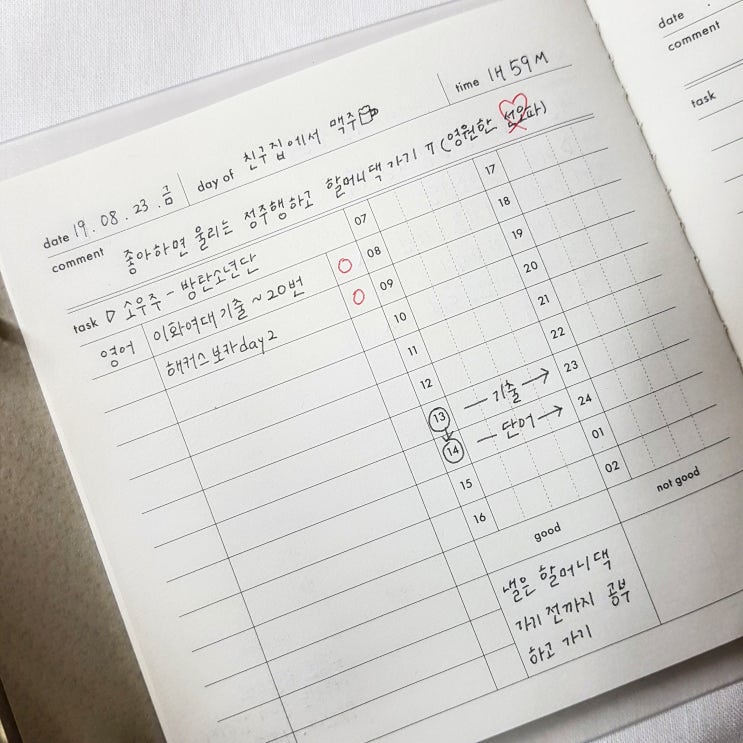 date 19.08.23.금 day of 친구집에서 맥주 time 1H 59M
comment 좋아하면 울리는 정주행하고 할머니댁 가기 ㅠ (영원한 선오파)
task ▷ 소우주 - 방탄소년단
영어 이화여대 기출 ~ 20번 ○
해커스 보카 day 2 ○
07
08
09
10
11
12
13 — 기출 →
14 — 단어 →
15
16
17
18
19
20
21
22
23
24
01
02
good
낼은 할머니댁
가기 전까지 공부
하고 가기
not good
date
comment
task